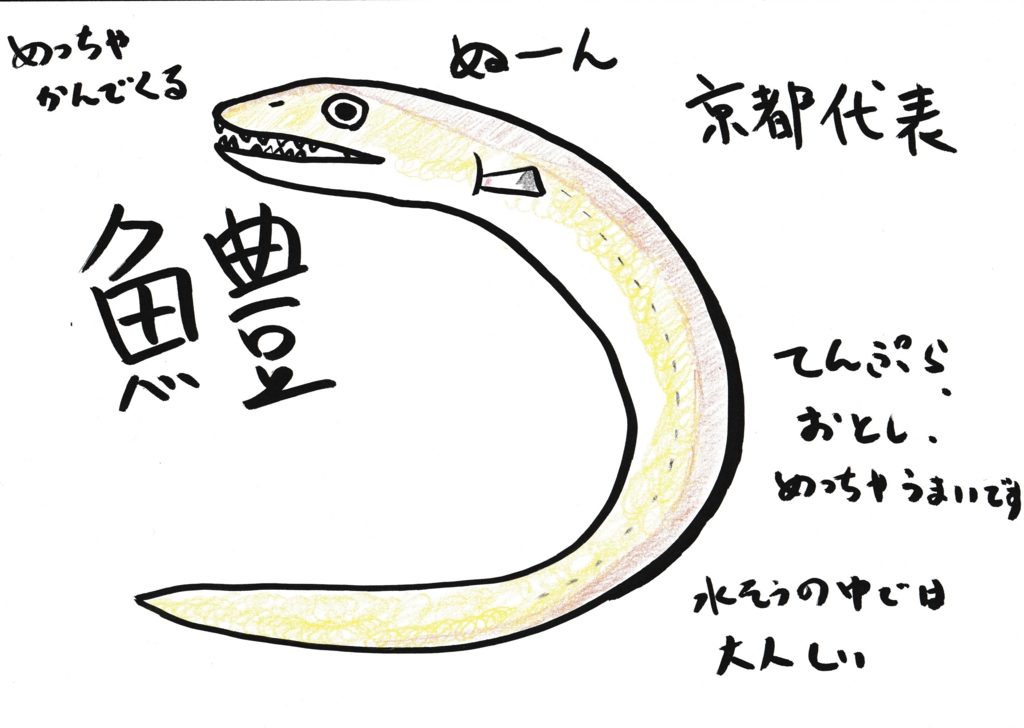 めっちゃ
かんでくる
ぬーん
京都代表
鱧
てんぷら、
おとし、
めっちゃうまいです
水そうの中では
大人しい